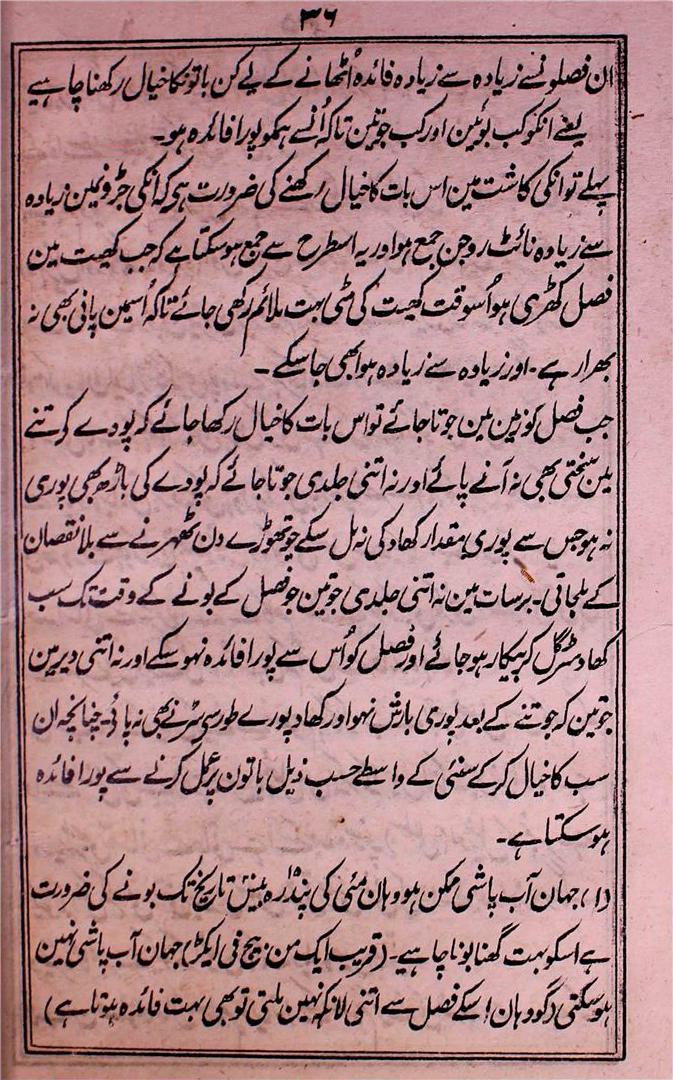 ۳۶
ان فصلونسے زیادہ سے زیادہ فائدہ اُٹھانے کے لیے کن باتونکا خیال رکھنا چاہیے
یعنے انکو کب بوئین اور کب جوتین تاکہ اُنسے ہمکو پورا فائدہ ہو۔
پہلے تو انکی کاشت مین اس بات کا خیال رکھنے کی ضرورت ہی کہ انکی جڑونمین زیادہ
سے زیادہ نائٹروجن جمع ہو اور یہ اسطرح سے جمع ہوسکتا ہے کہ جب کھیت مین
فصل کھڑی ہو اُسوقت کھیت کی مٹی بہت ملائم رکھی جائے تاکہ اُسمین پانی بھی نہ
بھرا رہے۔ اور زیادہ سے زیادہ ہوا بھی جاسکے۔
جب فصل کو زمین مین جوتا جائے تو اس بات کا خیال رکھا جائے کہ پودے کے تنے
مین سختی بھی نہ آنے پائے اور نہ اتنی جلدی جوتا جائے کہ پودے کی باڑھ بھی پوری
نہ ہو جس سے پوری مقدار کھاد کی نہ مل سکے جو تھوڑے دن ٹھہرنے سے بلا نقصان
کے ملجاتی۔ برسات مین نہ اتنی جلدی جوتین جو فصل کے بونے کے وقت تک سب
کھاد سڑ گل کر بیکار ہوجائے اور فصل کو اُس سے پورا فائدہ نہو سکے اور نہ اتنی دیر مین
جوتین کہ جوتنے کے بعد پوری بارش نہو اور کھاد پورے طور سے سڑنے بھی نہ پائے۔ چنانچہ ان
سب کا خیال کرکے سنئی کے واسطے حسب ذیل باتون پر عمل کرنے سے پورا فائدہ
ہوسکتا ہے۔
(۱) جہان آب پاشی ممکن ہو وہان مئی کی پندرہ بیس تاریخ تک بونے کی ضرورت
ہے اسکو بہت گھنا بونا چاہیے۔ (قریب ایک من بیج فی ایکڑ) جہان آب پاشی نہین
ہوسکتی (گو وہان اسکے فصل سے اتنی نہین ملتی تو بھی بہت فائدہ ہوتا ہے)